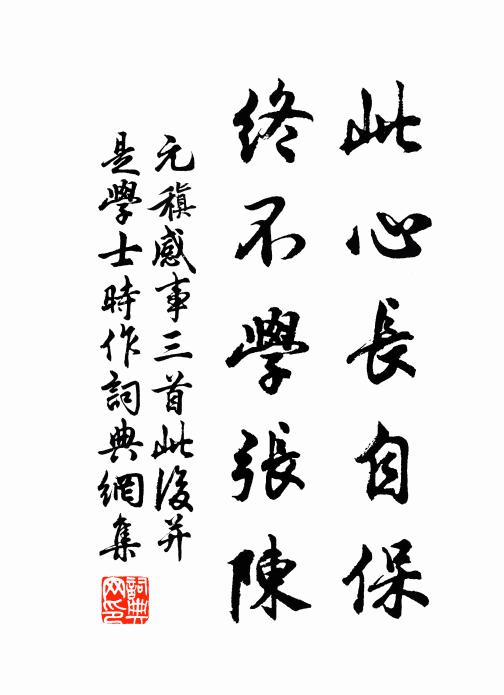 此心長自保
終不學張陳
元稹感事三首此後并
是學士時作詞典網集
詞典網印